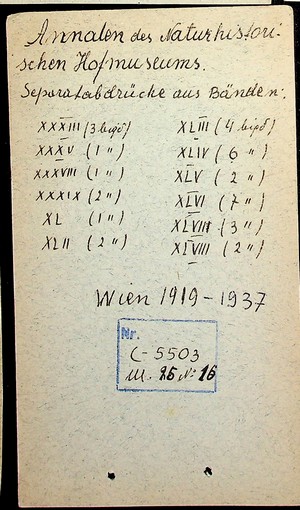 Annalen des Naturhistori-
schen Hofmuseums.
Separatabdrücke aus Bänden:
XXXIII (3 
XXXV (1 ")
XXXVIII (1 ")
XXXIX (2 ")
XL (1 ")
XLII (2 ")
XLIII (4 
XLIV (6 ")
XLV (2 ")
XLVI (7 ")
XLVII (3 ")
XLVIII (2 ")
Wien 1919-1937
Nr.
C-5503